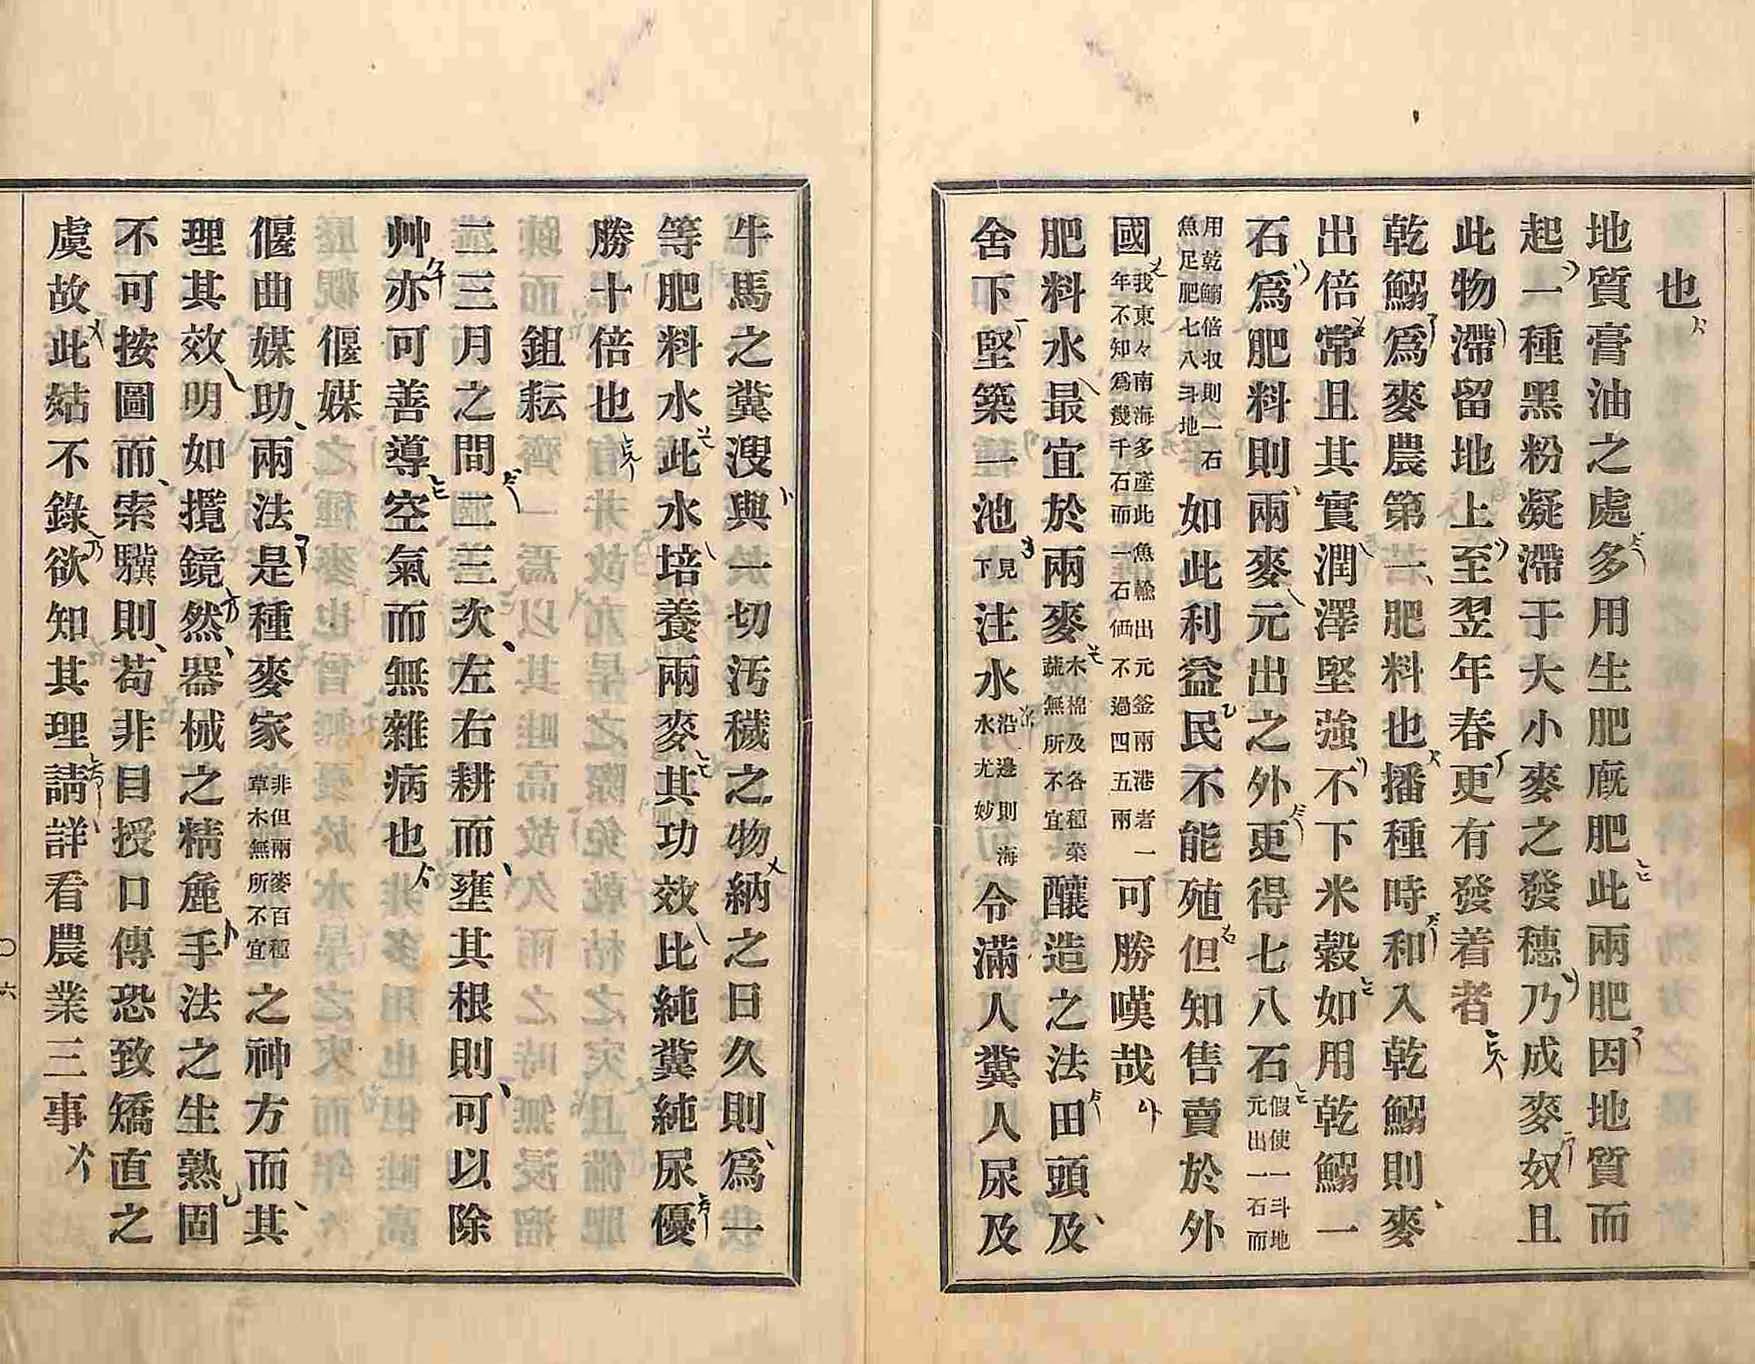 也
地質膏油之處多用生肥廐肥此兩肥因地質而
起一種黑粉凝滯于大小麥之發穗乃成麥奴且
此物滯留地上至翌年春更有發着者
乾鰯爲麥農第一肥料也播種時和入乾鰯則麥
出倍常且其實潤澤堅強不下米穀如用乾鰯一
石爲肥料則兩麥元出之外更得七八石假使一斗地元出一石而
用乾鰯倍収則一石魚足肥七八斗地如此利益民不能殖但知售賣於外
國我東々南海多產此魚輸出元釜兩港者一年不知爲幾千石而一石価不過四五兩可勝嘆哉
肥料水最宜於兩麥木棉及各種菜蔬無所不宜釀造之法田頭及
舍下堅築一池見下注水沿邊則海水尤妙令滿人糞人尿及
牛馬之糞溲與一切汚穢之物納之日久則爲一
等肥料水此水培養兩麥其功效比純糞純尿優
勝十倍也
鉏耘
二三月之間二三次左右耕而壅其根則可以除
艸亦可善導空氣而無雜病也
偃媒
偃曲媒助兩法是種麥家非但兩麥百種草木無所不宜之神方而其
理其效明如攬鏡然器械之精麁手法之生熟固
不可按圖而索驥則苟非目授口傳恐致矯直之
虞故此姑不錄欲知其理請詳看農業三事
六